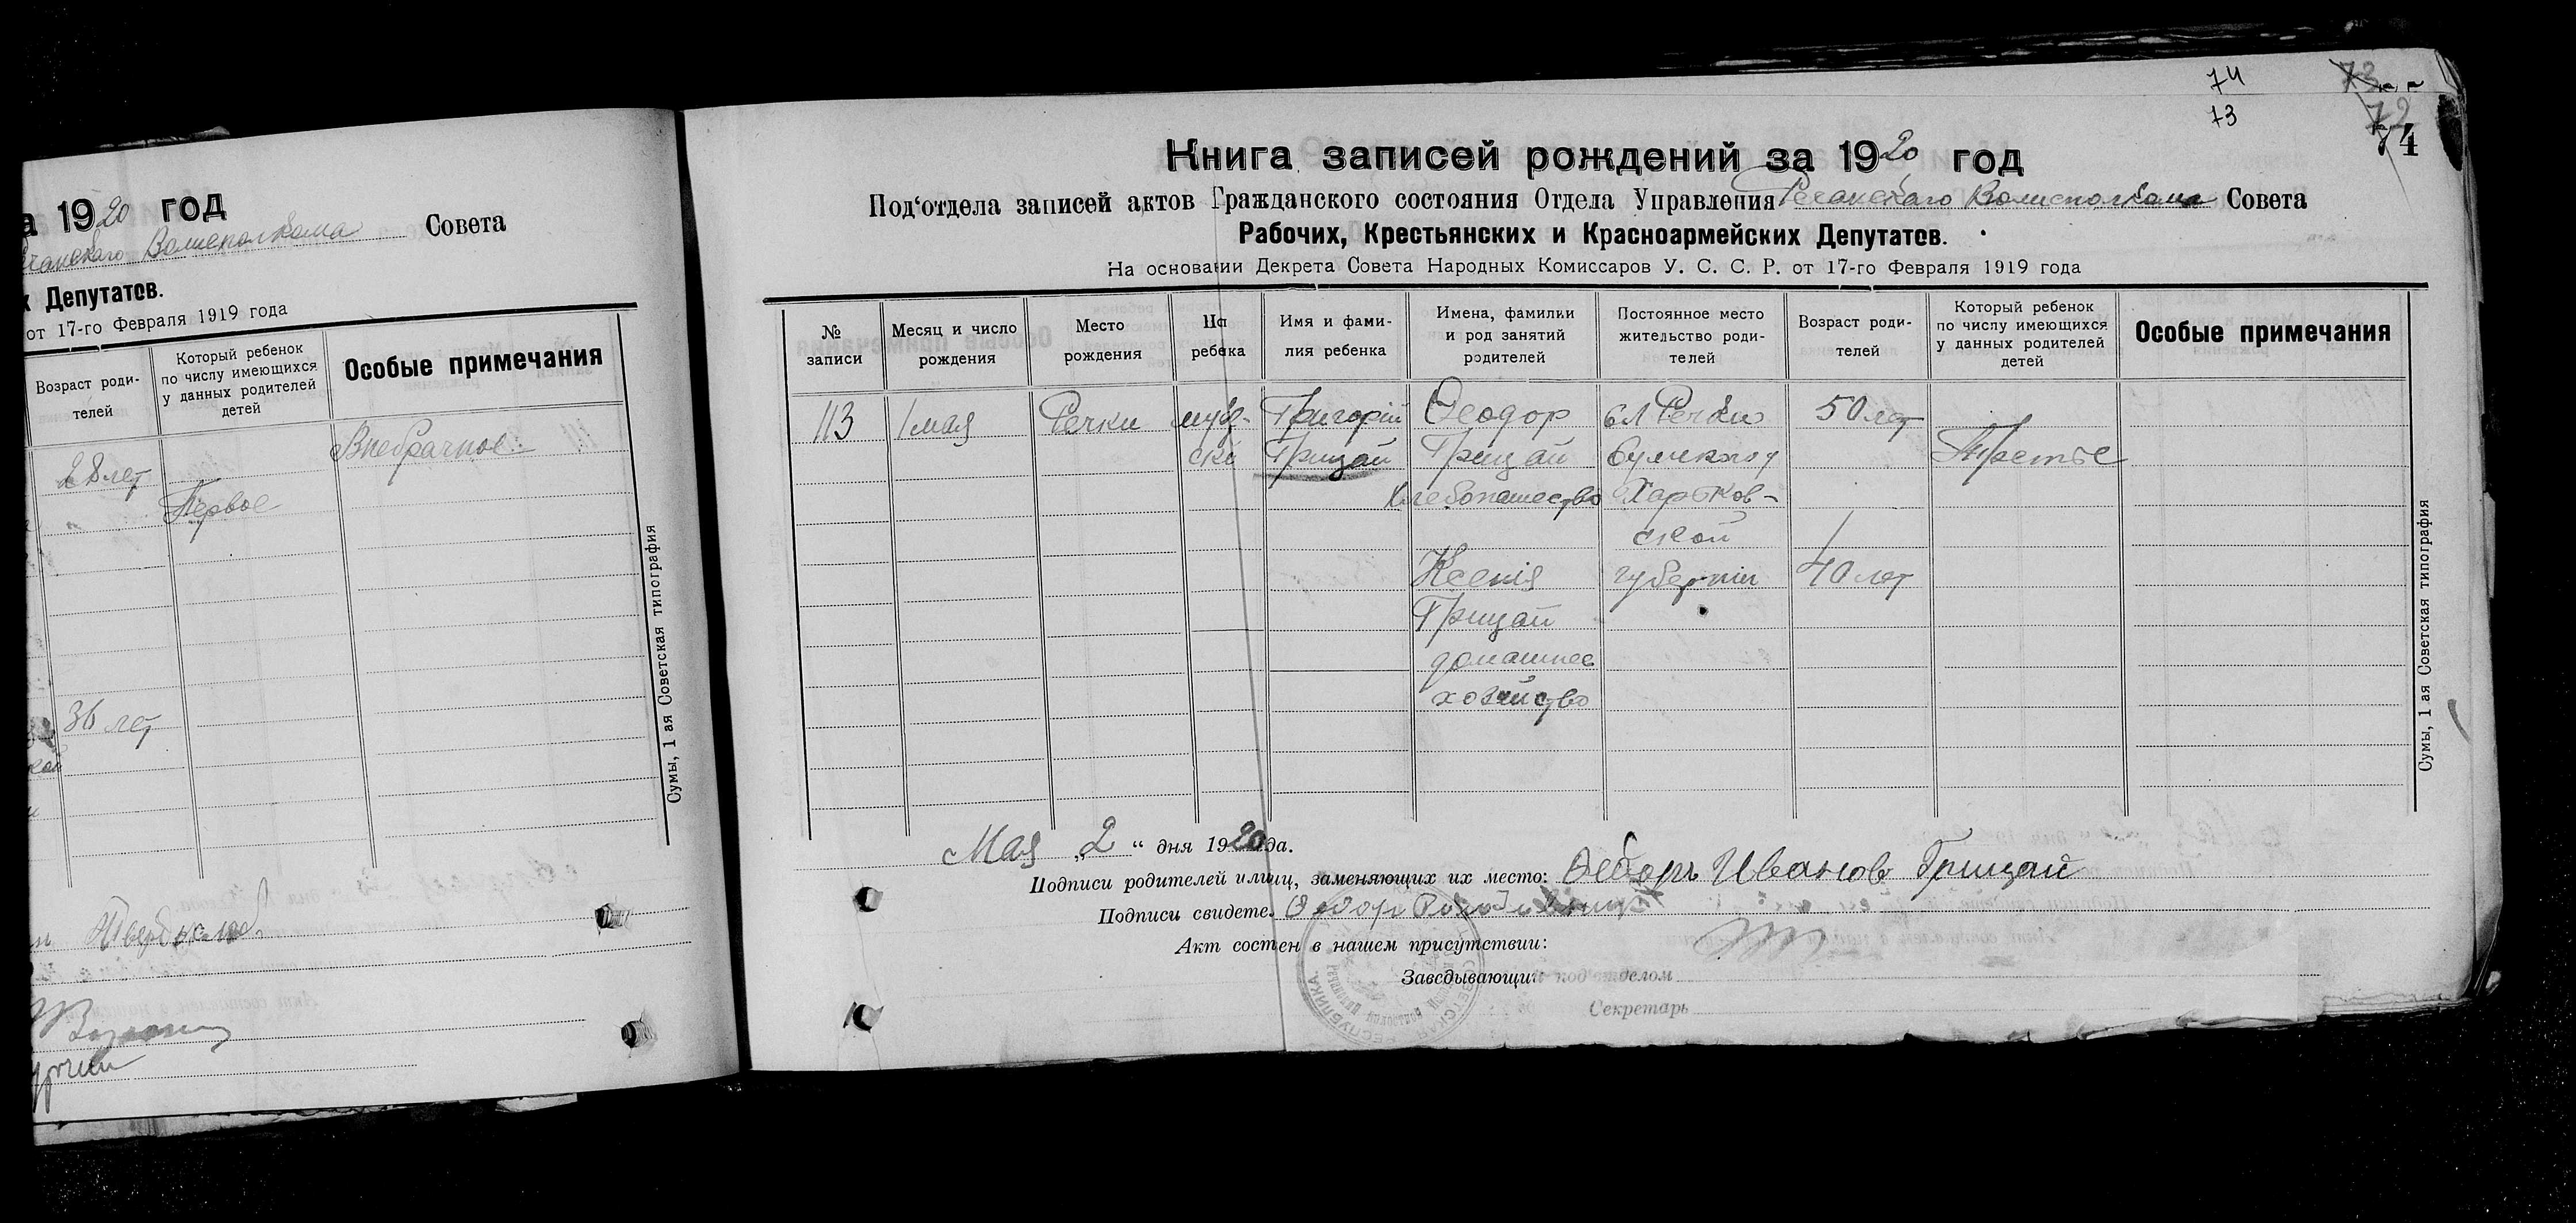 а 1920 год
Волисполкома Совета
х Депутатов.
от 17-го Февраля 1919 года
Возраст роди-
телей
Который ребенок
по числу имеющихся
у данных родителей
детей
Особые примечания
28 лет
Первое
Внебрачное
36 лет
Сумы, 1 ая Советская типография
74
73
73
72
74
Книга записей рождений за 1920 год
Под‘отдела записей актов Гражданского состояния Отдела Управления Речанскаго Волисполкома Совета
Рабочих, Крестьянских и Красноармейских Депутатов.
На основании Декрета Совета Народных Комиссаров У. С. С. Р. от 17-го Февраля 1919 года
№
записи
Месяц и число
рождения
Место
рождения
Пол
ребенка
Имя и фами-
лия ребенка
Имена, фамилии
и род занятий
родителей
Постоянное место
жительство роди-
телей
Возраст роди-
телей
Который ребенок
по числу имеющихся
у данных родителей
детей
Особые примечания
113
1 мая
Речки
муж-
ской
Григорій
Грицай
Ѳеодор
Грицай
Хлебопашество
Ксенія
Грицай
домашнее
хозяйство
сл Речки
Сумск
Харьков-
ской
губерніи
50 лет
40 лет
Третье
Сумы, 1 ая Советская типография
Мая „2“ дня 1920 да.
Подписи родителей или лиц, заменяющих их место: Ѳедоръ Иванов Грицай
Подписи свидете. Ѳедор
Акт состен в нашем присутствии:
Заведывающий под‘отделом
Секретарь